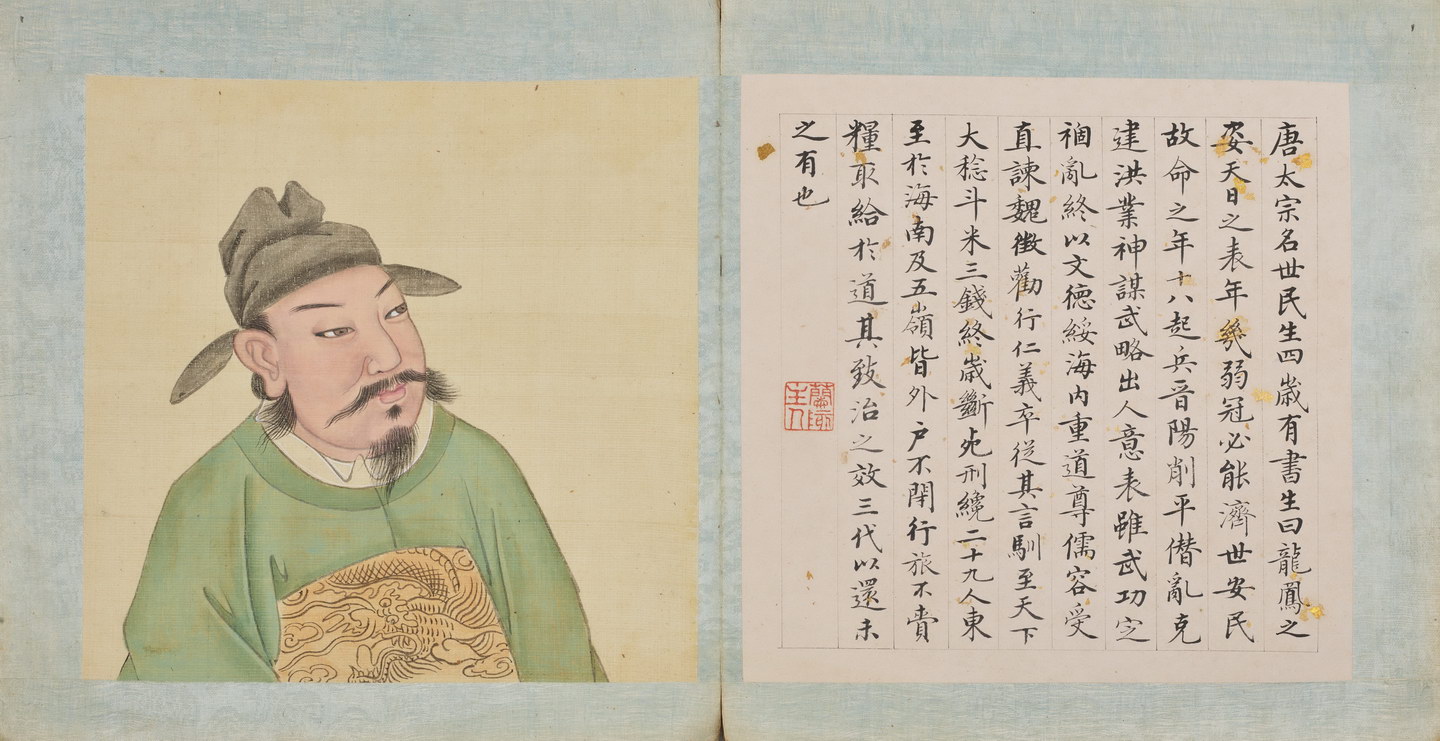 唐太宗名世民生四歲有書生曰龍鳳之
姿天日之表年幾弱冠必能濟世安民
故命之年十八起兵晉陽削平僭亂克
建洪業神謀武略出人意表雖武功定
禍亂終以文德綏海內重道尊儒容受
直諫魏徵勸行仁義卒從其言馴至天下
大稔斗米三錢終歲斷死刑纔二十九人東
至於海南及五嶺皆外戶不閉行旅不賫
糧取給於道其致治之效三代以還未
之有也
主人